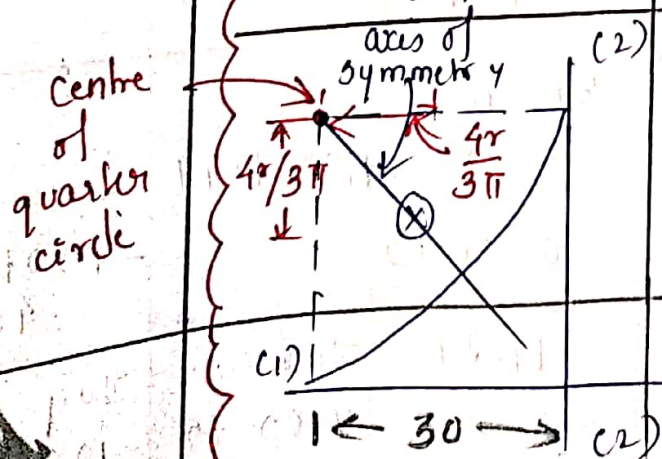 axes of
symmetry
(2)
Centre
of
quarter
circle
4r/3π
4r
3π
(1)
30
(2)